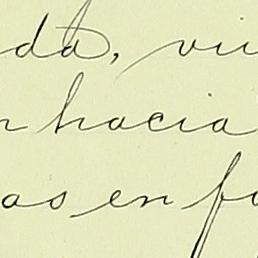 da, vi
n hacia
as en fo